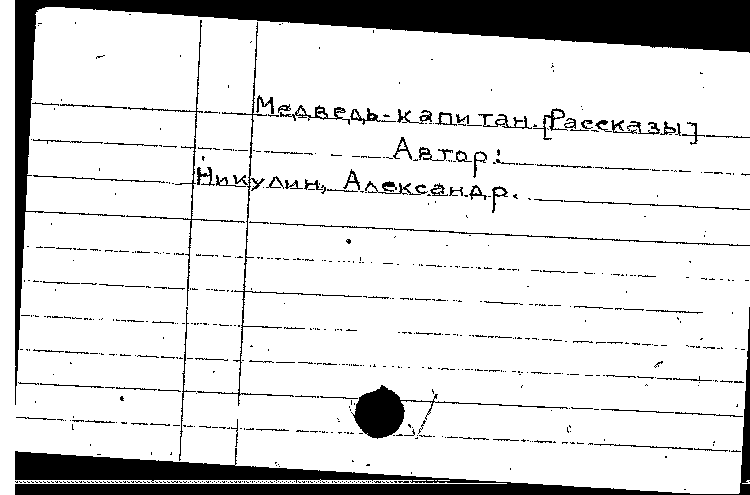 Медведь-капитан. [Рассказы]
Автор:
Никулин, Александр.